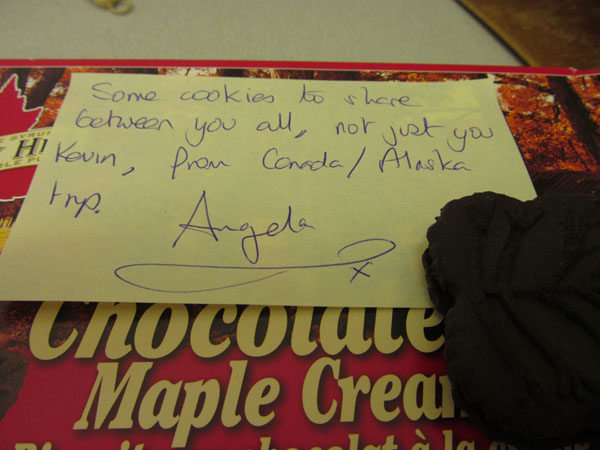 Some cookies to share
between you all, not just you
Kevin, from Canada/Alaska
trip.
Angela
x
Chocolate
Maple Cream
chocolat à la